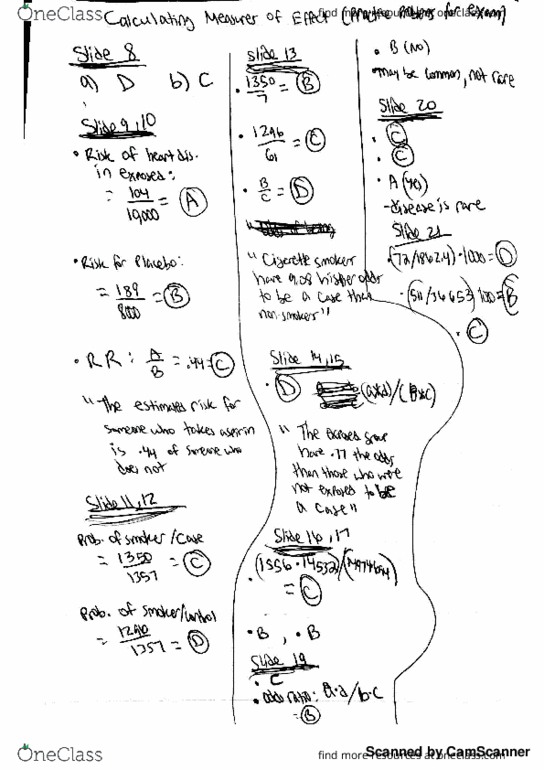 OneClass
find more resources at oneclass.com
Calculating Measures of Effect (Practice Problems for Exam)
Slide 8
a) D b) C
Slide 9,10
• Risk of heart dis.
in exposed:
= 104
10,000 = A
• Risk for Placebo:
= 189
= B
• RR: A
B = .44 = C
"The estimates risk for
someone who takes aspirin
is .44 of someone who
does not
Slide 11,12
Prob. of smoker/case
= 1350
1357 = C
Prob. of smoker/control
= 1296
1357 = D
Slide 13
• 1350
7 = B
• 1296
61 = C
• B
C = D
"Cigarette smokers
have 9.08 higher odds
to be a case than
non-smokers"
Slide 14,15
• D (a×d)/(b×c)
"The exposed group
have .77 the odds
than those who were
not exposed to be
a case"
Slide 16,17
= C
• B, • B
Slide 19
• C
• odds ratio: a·d/b·c
= B
• B (no)
•may be common, not rare
Slide 20
• C
• C
• A (yes)
-disease is rare
Slide 21
•(72/18624)·1000 = D
= B
• C
OneClass
find more resources at oneclass.com
Scanned by CamScanner